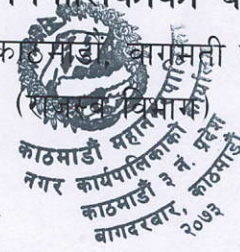 काठमाडौं, वागमती
(राजस्व विभाग)
काठमाडौं महानगरपालिका
नगर कार्यपालिकाको कार्यालय
काठमाडौं ३ नं. प्रदेश
बागदरबार, काठमाडौं
२०७३